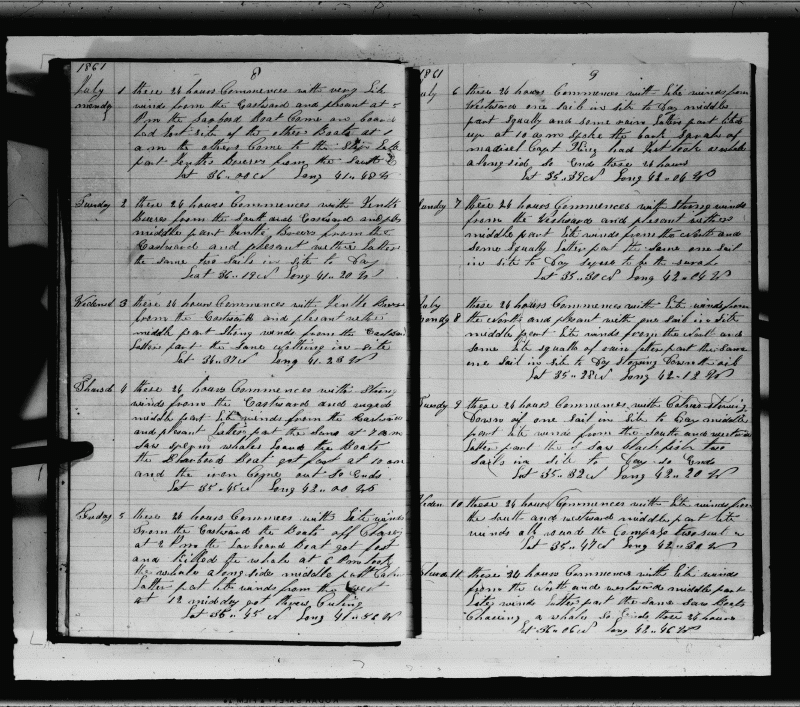 1861
8
July 1 these 24 hours Commences with very Lite
monday winds from the Eastward and plesant at 5
Pm the Larbord Boat Came on board
had lost site of the other Boats at 1
a m the others Came to the Ship Latter
part gentle Breezes from the South E
Lat 36 " 08 N Long 41 " 48 W
Tuesday 2 these 24 hours Commences with Gentle
Breezes from the South and Eastward and
middle part Gentle Breezes from the
Eastward and plesant wether Latter
the same two Sails in Site to Day
Lat 36 " 19 N Long 41 " 20 W
Wedensd 3 these 24 hours Commences with Gentle Breezes
from the Eastward and plesant wether
middle part Strong winds from the Eastward
Latter part the Same Nothing in Site
Lat 36 " 37 N Long 41 " 23 W
Thursd 4 these 24 hours Commences with Strong
winds from the Eastward and
middle part Lite winds from the Eastward
and plesant Latter part the Same at 7 a m
Saw Sperm whales Lowed the Boats
the Starbord Boat got fast at 10 am
and the iron Came out So Ends
Lat 35 " 45 N Long 42 " 00 W
Friday 5 these 24 hours Commences with Lite winds
From the Eastward the Boats off
at 2 Pm the Larbord Boat got fast
and Killed the whale at 6 Pm took
the whale along Side middle part Calm
Latter part Lite winds from the West
at 12 midday got threw Cuting
Lat 35 " 45 N Long 41 " 56 W
1861
9
July 6 these 24 hours Commences with Lite winds from
Westward one Sail in Site to Day middle
part Squally and some rain Latter part
up at 10 am Spoke the bark Sarah of
Capt had Just took a whale
along side So Ends these 24 hours
Lat 35 " 39 N Long 42 " 04 W
Sunday 7 these 24 hours Commences with Strong winds
from the Westward and plesant wether
middle part Lite winds from the North and
Some Squally Latter part the Same one Sail
in Site to Day to be the Sarah
Lat 35 " 30 N Long 42 " 04 W
July these 24 hours Commences with Lite winds from
monday 8 the North and plesant with one Sail in Site
middle part Lite winds from the North and
Some Lite Squalls of rain Latter part the Same
one Sail in Site to Day Stowing Down the oil
Lat 35 " 28 N Long 42 " 12 W
Tuesday 9 these 24 hours Commences with Calms Stowing
Down oil one Sail in Site to Day middle
part Lite winds from the South and westward
Latter part the Saw black fish two
Sails in Site to Day So Ends
Lat 35 " 32 N Long 42 " 20 W
Weden 10 these 24 hours Commences with Lite winds from
the South and westward middle part Lite
winds all round the Compass
Lat 35 " 47 N Long 42 " 30 W
Thursd 11 these 24 hours Commences with Lite winds
from the North and westward middle part
Lite winds Latter part the Same Saw Boats
Chaseing a whale So Ends these 24 hours
Lat 36 " 06 N Long 42 " 46 W